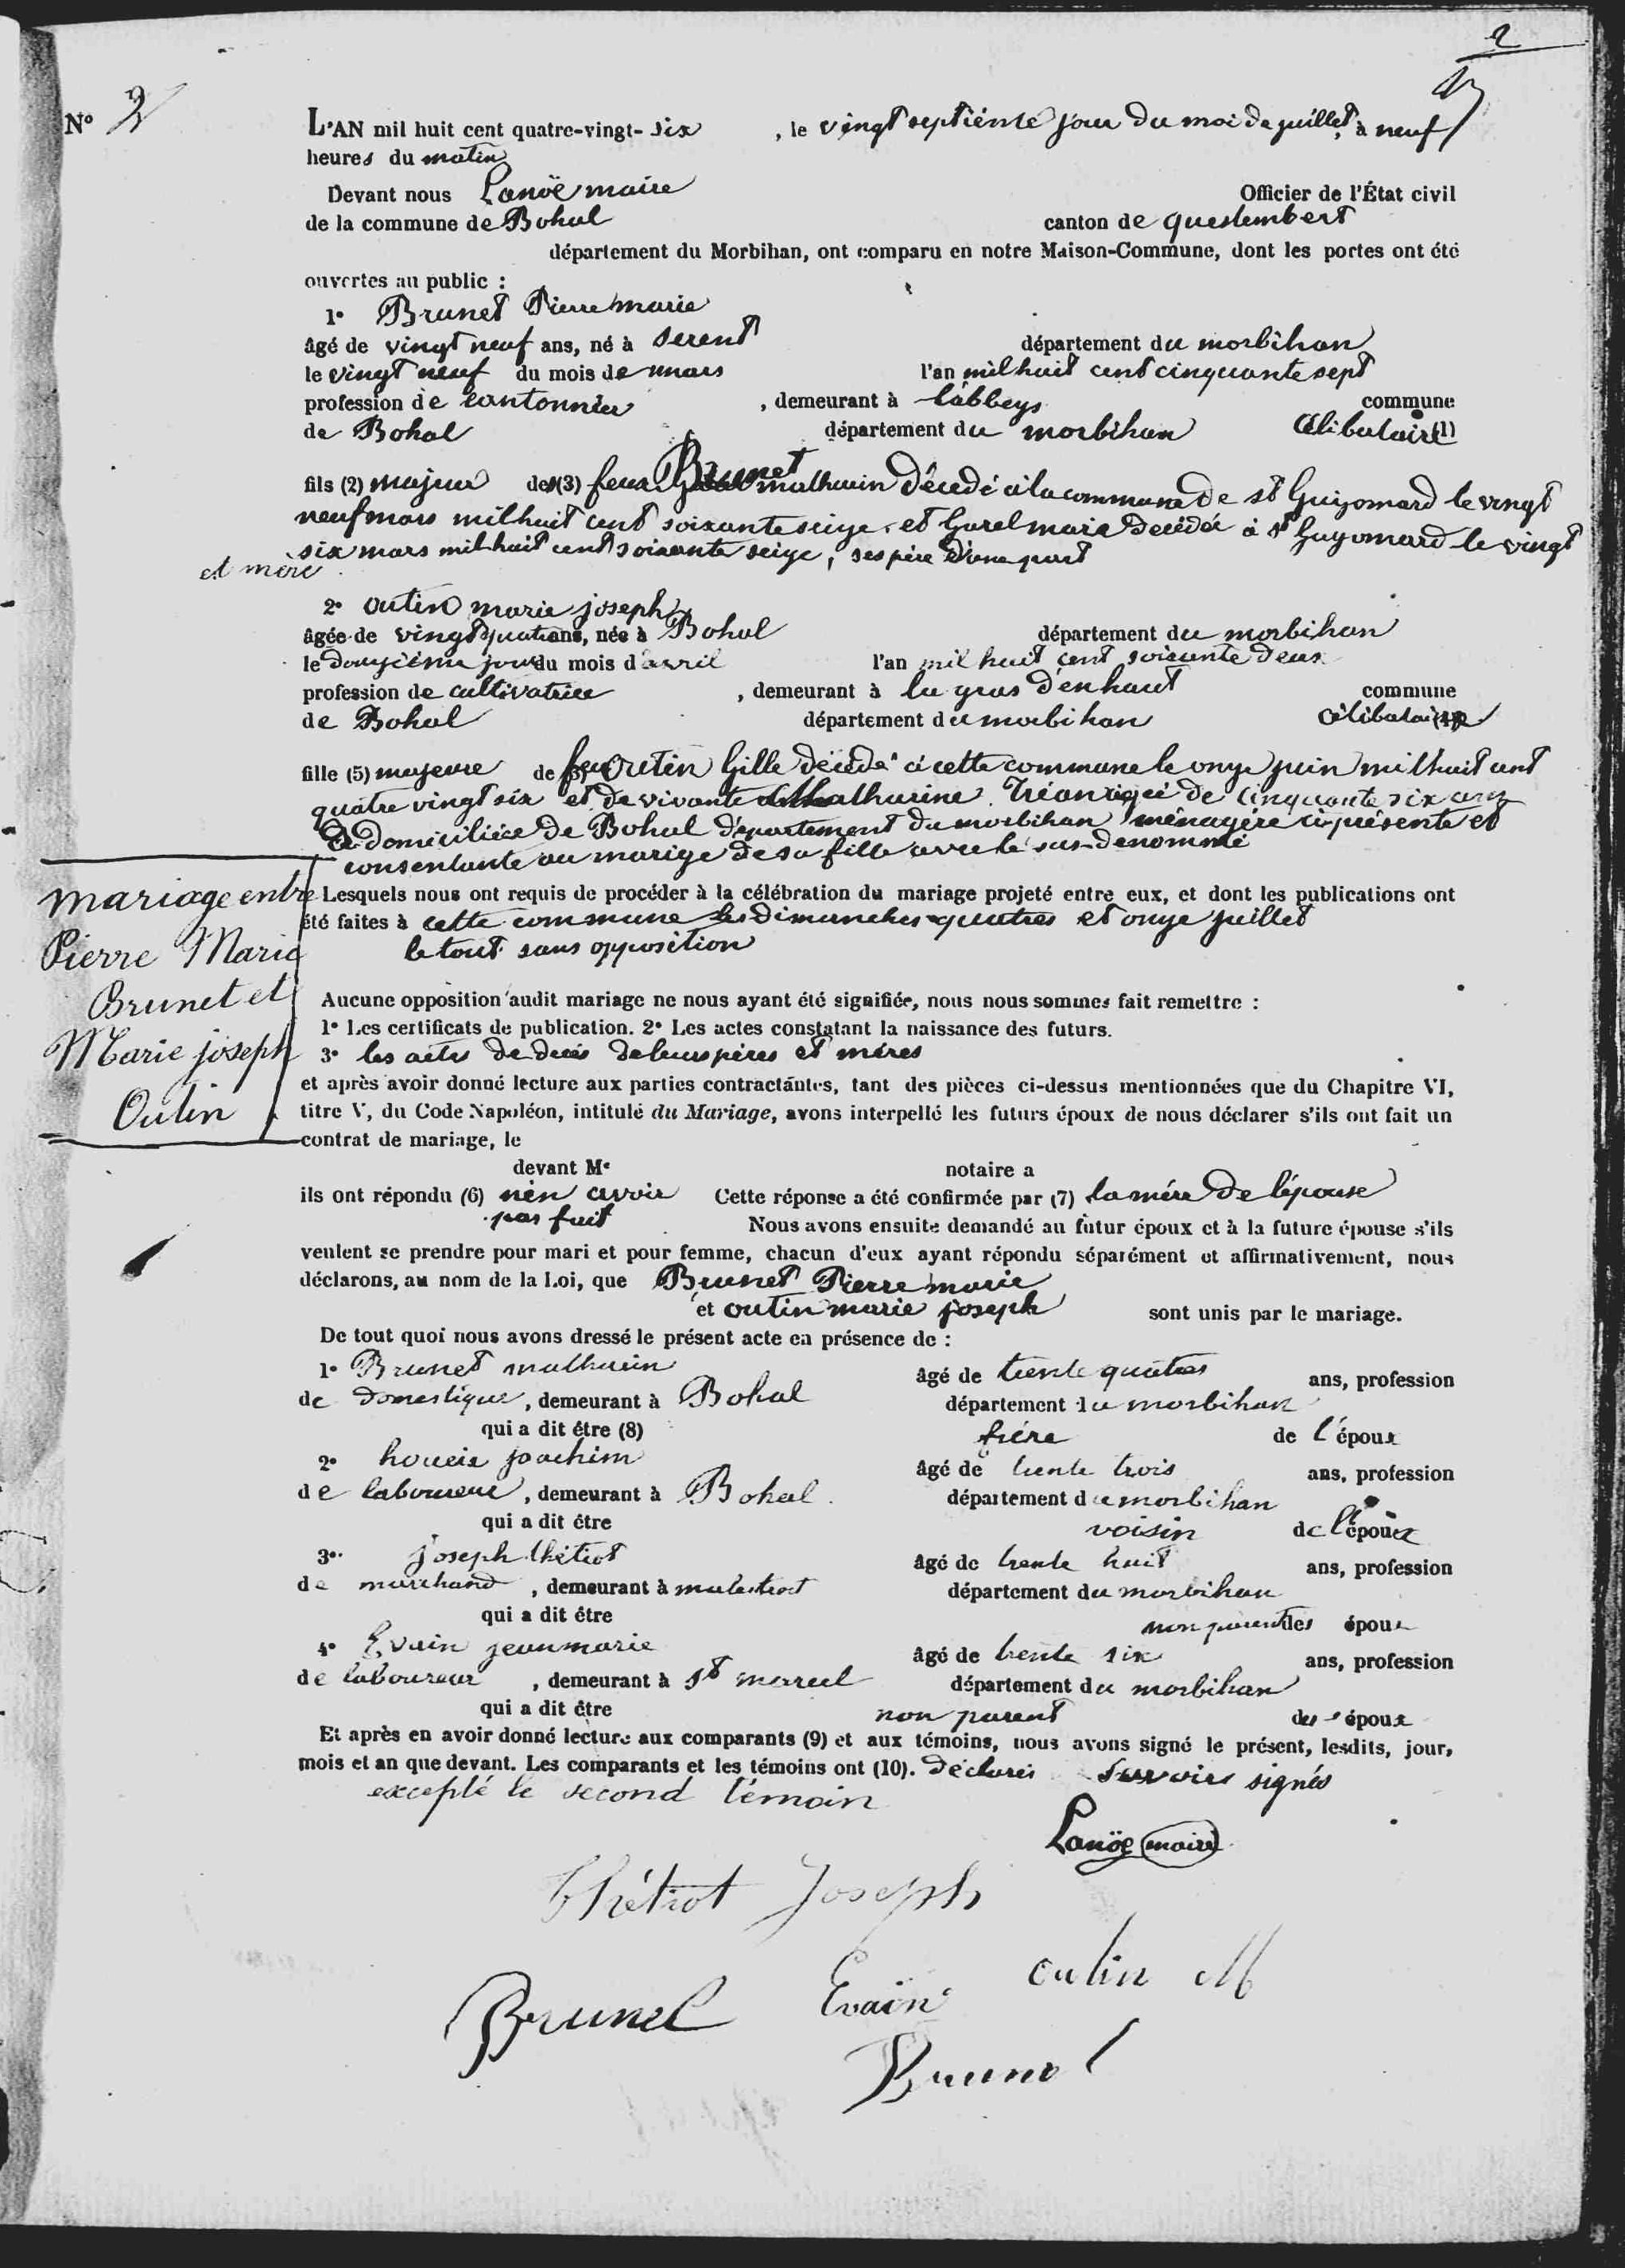 2
N° 2
L'AN mil huit cent quatre-vingt-six, le vingt septième jour du moi de juillet, à neuf
heures du matin
Devant nous Lanoë maire Officier de l'État civil
de la commune de Bohal canton de questembert
département du Morbihan, ont comparu en notre Maison-Commune, dont les portes ont été
ouvertes au public :
1° Brunet Pierre marie
âgé de vingt neuf ans, né à serent département du morbihan
le vingt neuf du mois de mars l'an mil huit cent cinquante sept
profession de cantonnier, demeurant à l'abbeys commune
de Bohal département du morbihan célibataire (1)
fils (2) majeur des (3) feux Brunet mathurin décédé à la commune de st Guyomard le vingt
neuf mars mil huit cent soixante seize, et Gurel marie décédée à st Guyomard le vingt
six mars mil huit cent soixante seize, ses père d'une part
et mère
2° outin marie joseph
âgée de vingt quatre ans, née à Bohal département du morbihan
le douzième jour du mois d'avril l'an mil huit cent soixante deux
profession de cultivatrice, demeurant à la gras d'en haut commune
de Bohal département du morbihan célibataire
fille (5) majeure de feu Outin Gille décédé à cette commune le onze juin mil huit cent
quatre vingt six et de vivante Mathurine Tréan agée de cinquante six ans
domiciliée de Bohal département du morbihan ménagère ci-présente et
consentante au marige de sa fille avec le sus-denommé
mariage entre
Pierre Marie
Brunet et
Marie joseph
Outin
Lesquels nous ont requis de procéder à la célébration du mariage projeté entre eux, et dont les publications ont
été faites à cette commune les dimanches quatres et onze juillet
le tout sans opposition
Aucune opposition audit mariage ne nous ayant été signifiée, nous nous sommes fait remettre :
1° Les certificats de publication. 2° Les actes constatant la naissance des futurs.
3° les actes de decès de leurs pères et mères
et après avoir donné lecture aux parties contractantes, tant des pièces ci-dessus mentionnées que du Chapitre VI,
titre V, du Code Napoléon, intitulé du Mariage, avons interpellé les futurs époux de nous déclarer s'ils ont fait un
contrat de mariage, le
devant Me notaire a
ils ont répondu (6) n'en avoir Cette réponse a été confirmée par (7) la mère de l'épouse
pas fait Nous avons ensuite demandé au futur époux et à la future épouse s'ils
veulent se prendre pour mari et pour femme, chacun d'eux ayant répondu séparément et affirmativement, nous
déclarons, au nom de la Loi, que Brunet Pierre marie
et outin marie joseph sont unis par le mariage.
De tout quoi nous avons dressé le présent acte en présence de :
1° Brunet mathurin âgé de trente quatres ans, profession
de domestique, demeurant à Bohal département du morbihan
qui a dit être (8) frère de l'époux
2° houeix joachim âgé de trente trois ans, profession
de laboureur, demeurant à Bohal département du morbihan
qui a dit être voisin de l'époux
3° joseph thétiot âgé de trente huit ans, profession
de marchand, demeurant à malestroit département du morbihan
qui a dit être non parent des époux
4° Evain jean marie âgé de trente six ans, profession
de laboureur, demeurant à st marcel département du morbihan
qui a dit être non parent des époux
Et après en avoir donné lecture aux comparants (9) et aux témoins, nous avons signé le présent, lesdits, jour,
mois et an que devant. Les comparants et les témoins ont (10). déclarés savoirs signés
excepté le second témoin
Lanöe maire
Thétiot Joseph
outin M
Brunet Evain
Brunet